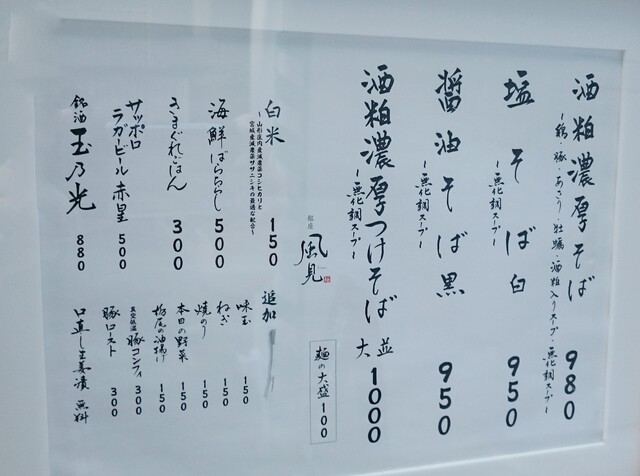 酒粕濃厚そば 980
~鶏・豚・あさり・牡蠣・酒粕入りスープ・無化調スープ~
塩そば 白 950
~無化調スープ~
醤油そば 黒 950
~無化調スープ~
酒粕濃厚つけそば 並大 1000
~無化調スープ~
麺の大盛 100
銀座 風見
白米 150
~山形庄内産減農薬コシヒカリと
宮城産減農薬ササニシキの最適な配合~
海鮮ばららし 500
きまぐれごはん 300
サッポロ
ラガービール 赤星 500
銘酒 玉乃光 880
追加
味玉 150
ねぎ 150
焼のり 150
本日の野菜 150
栃尾の油揚げ 150
真空低温 豚コンフィ 300
豚ロースト 300
口直し生姜漬 無料